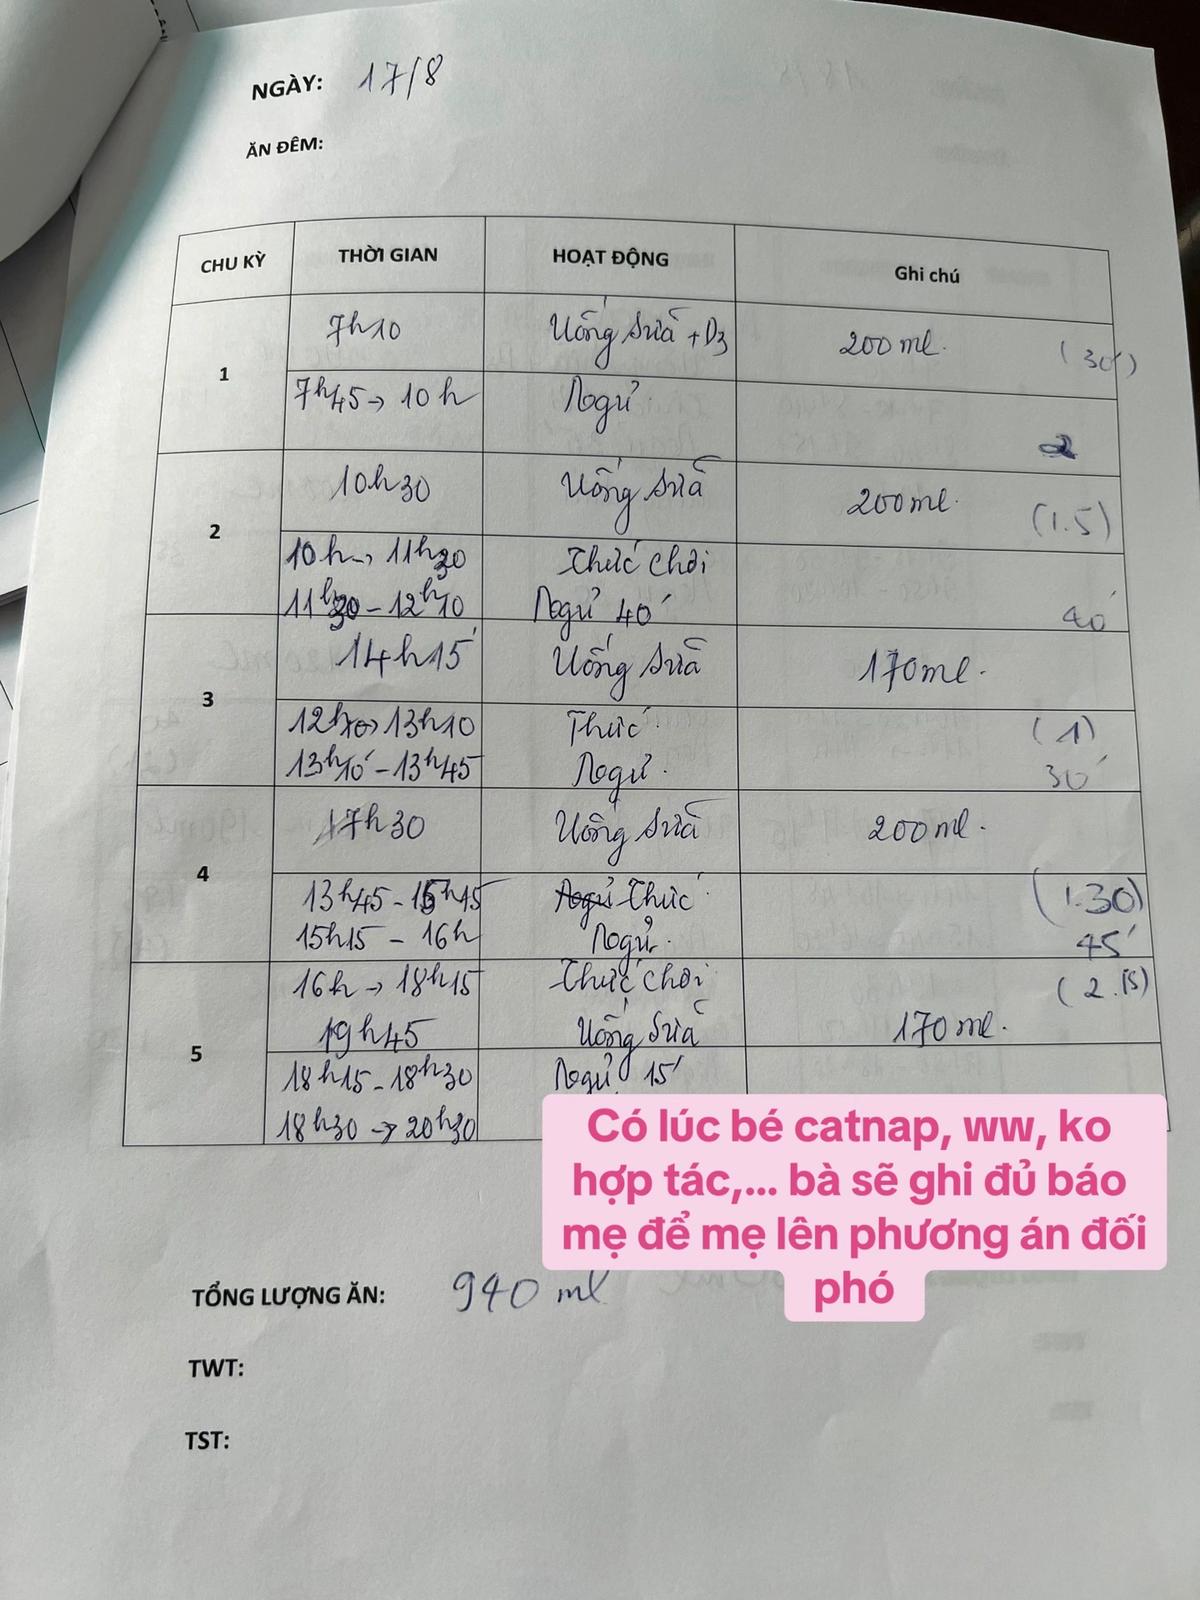 NGÀY: 17/8
ĂN ĐÊM:
CHU KỲ THỜI GIAN HOẠT ĐỘNG Ghi chú
1
7h10 Uống Sữa + D3 200ml. (30')
7h45 → 10h Ngủ 2
2
10h30 Uống Sữa 200ml. (1.5)
10h → 11h30 Thức chơi
11h30 - 12h10 Ngủ 40' 40'
3
14h15' Uống Sữa 170ml.
12h10 → 13h10 Thức (1)
13h10' - 13h45 Ngủ. 30'
4
17h30 Uống Sữa 200ml.
13h45 - 15h15 Ngủ Thức (1.30)
15h15 - 16h Ngủ. 45'
5
16h → 18h15 Thức chơi (2.15)
19h45 Uống Sữa 170ml.
18h15 - 18h30 Ngủ 15'
18h30 → 20h30
Có lúc bé catnap, ww, ko
hợp tác,... bà sẽ ghi đủ báo
mẹ để mẹ lên phương án đối
phó
TỔNG LƯỢNG ĂN: 940 ml
TWT:
TST: